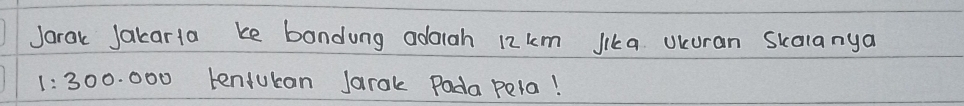 Jarak Jakarta ke bandung adalah 12 km Jika Ukuran Skalanya
1:300.000 tentukan Jarak Pada peta!